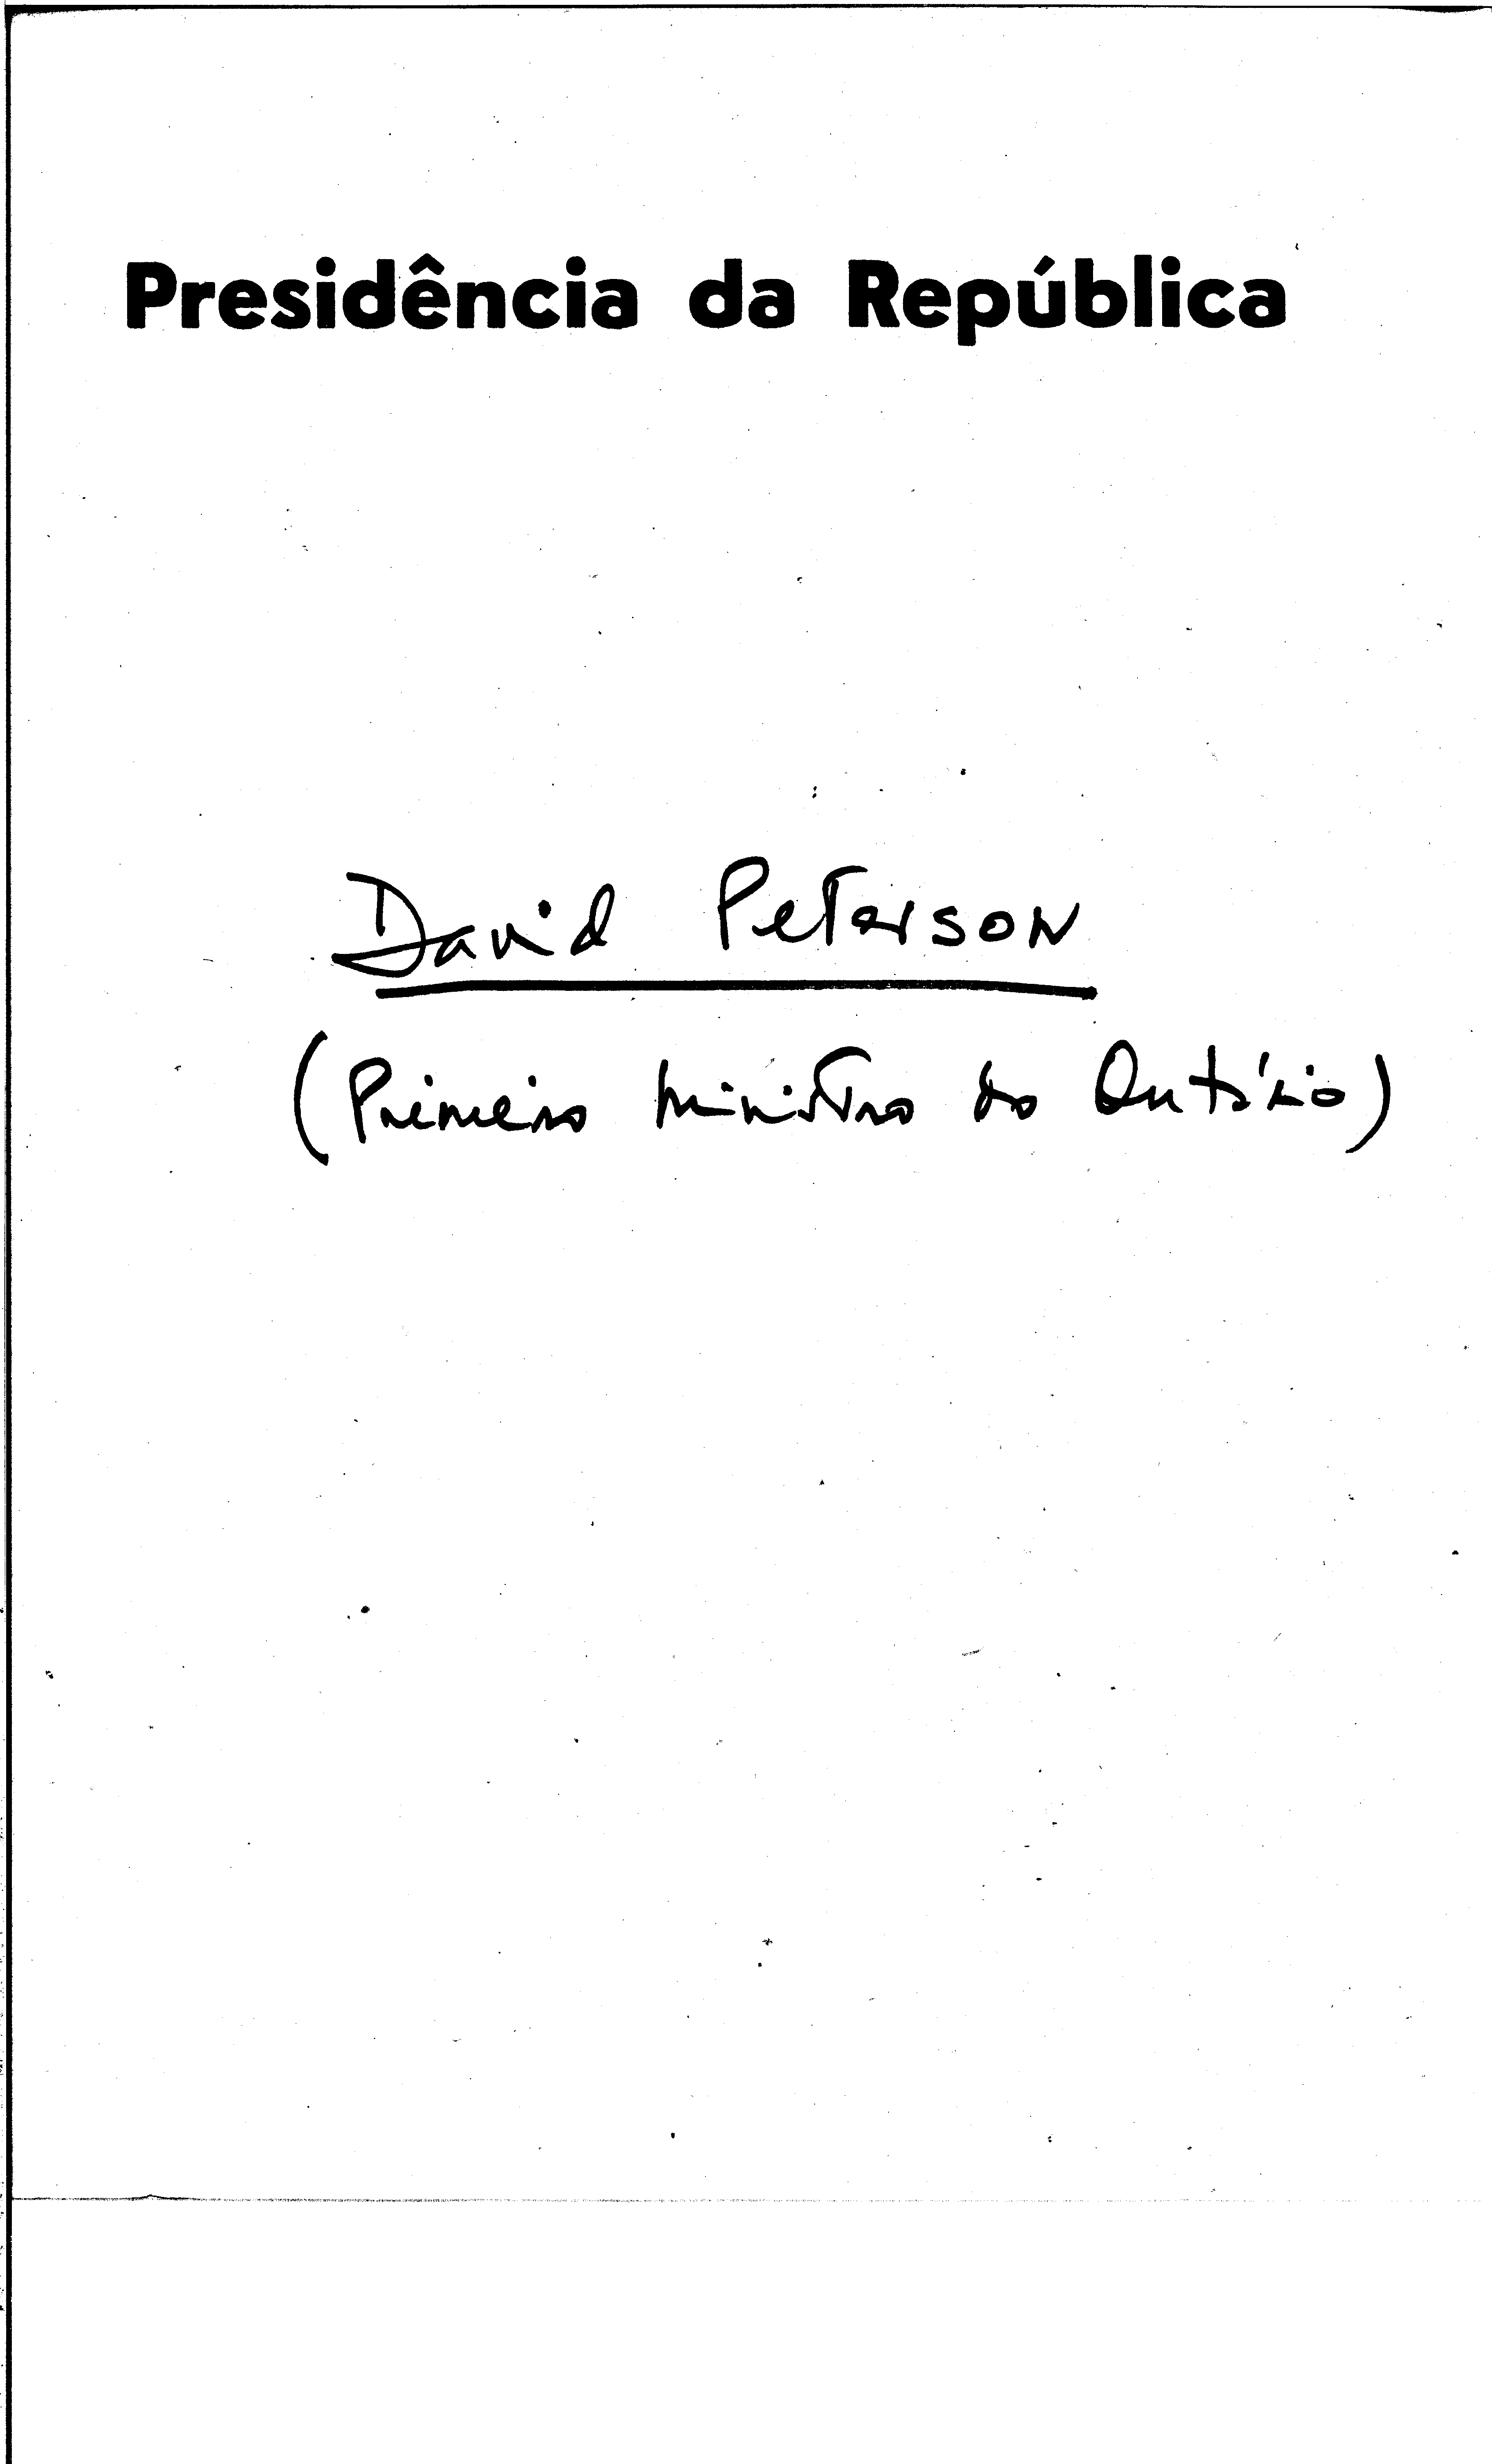 Presidência da República
David Peterson
(Primeiro Ministro do Ontário)